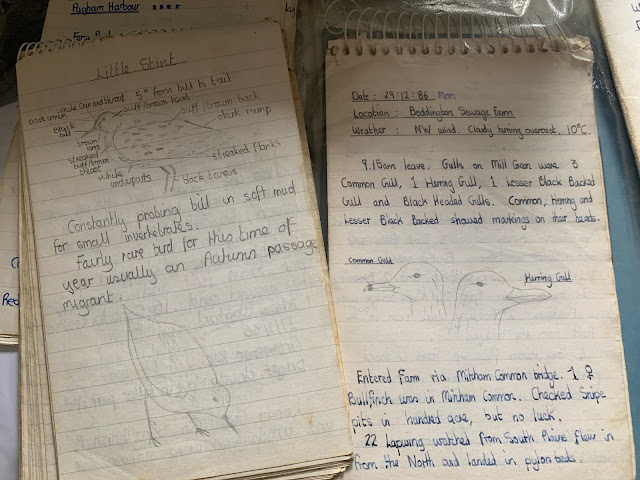 Pagham Harbour
Little Stint
5" from bill to tail
white chin and throat
buff/brown head
Dark crown
buff/brown back
dark rump
Black bill
brown
streaked
buff/brown
breast
streaked flanks
white
underparts
Black tarsus
Constantly probing bill in soft mud
for small invertebrates.
Fairly rare bird for this time of
year usually an Autumn passage
migrant.
Date : 29:12:86 Mon
Location : Beddington Sewage Farm
Weather : NW wind. Cloudy turning overcast. 10°C.
9.15am leave. Gulls on Mill Green were 3
Common Gull, 1 Herring Gull, 1 Lesser Black Backed
Gull and Black Headed Gulls. Common, herring and
Lesser Black Backed showed markings on their heads.
Common Gull
Herring Gull
Entered Farm via Mitcham Common bridge. 1 ♀
Bullfinch was in Mitcham Common. Checked Snipe
pits in hundred acre, but no luck.
22 Lapwing watched from South Plains flew in
from the North and landed in pylon beds.